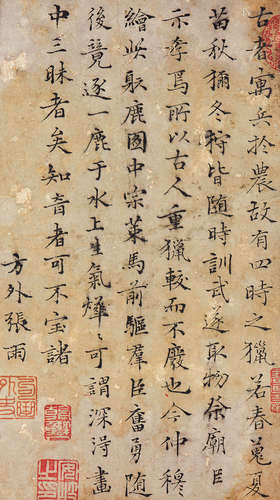 古者寓兵於農故有四時之獵若春蒐夏
苗秋獮冬狩皆隨時訓武遂取物祭廟且
示孝焉所以古人重獵較而不廢也今仲穆
繪此取鹿圖中宗策馬前驅羣臣奮勇隨
後競逐一鹿于水上生氣爗〻可謂深得畫
中三昧者矣知音者可不宝諸
方外張雨